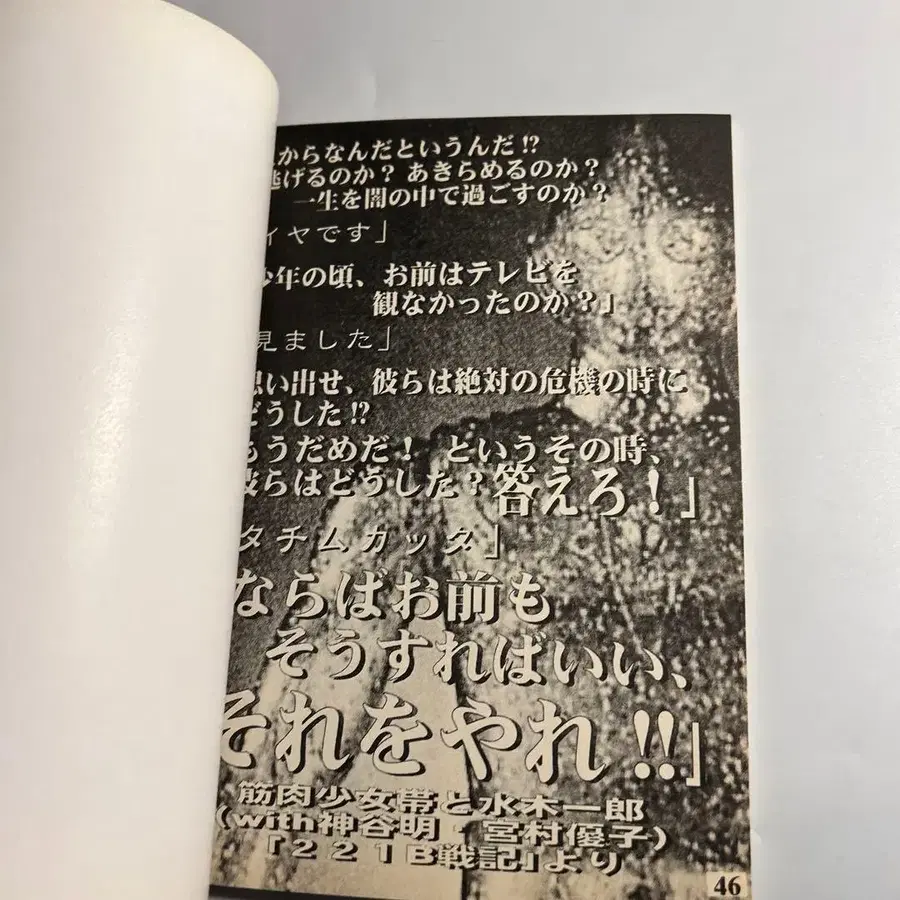 からなんだというんだ!?
げるのか？あきらめるのか？
一生を闇の中で過ごすのか？
イヤです」
少年の頃、お前はテレビを
観なかったのか？」
見ました」
思い出せ、彼らは絶対の危機の時に
どうした!?
もうだめだ！　というその時、
彼らはどうした？答えろ！」
タチムカッタ」
ならばお前も
そうすればいい、
それをやれ!!」
筋肉少女帯と水木一郎
（with神谷明・宮村優子）
「２２１Ｂ戦記」より
46